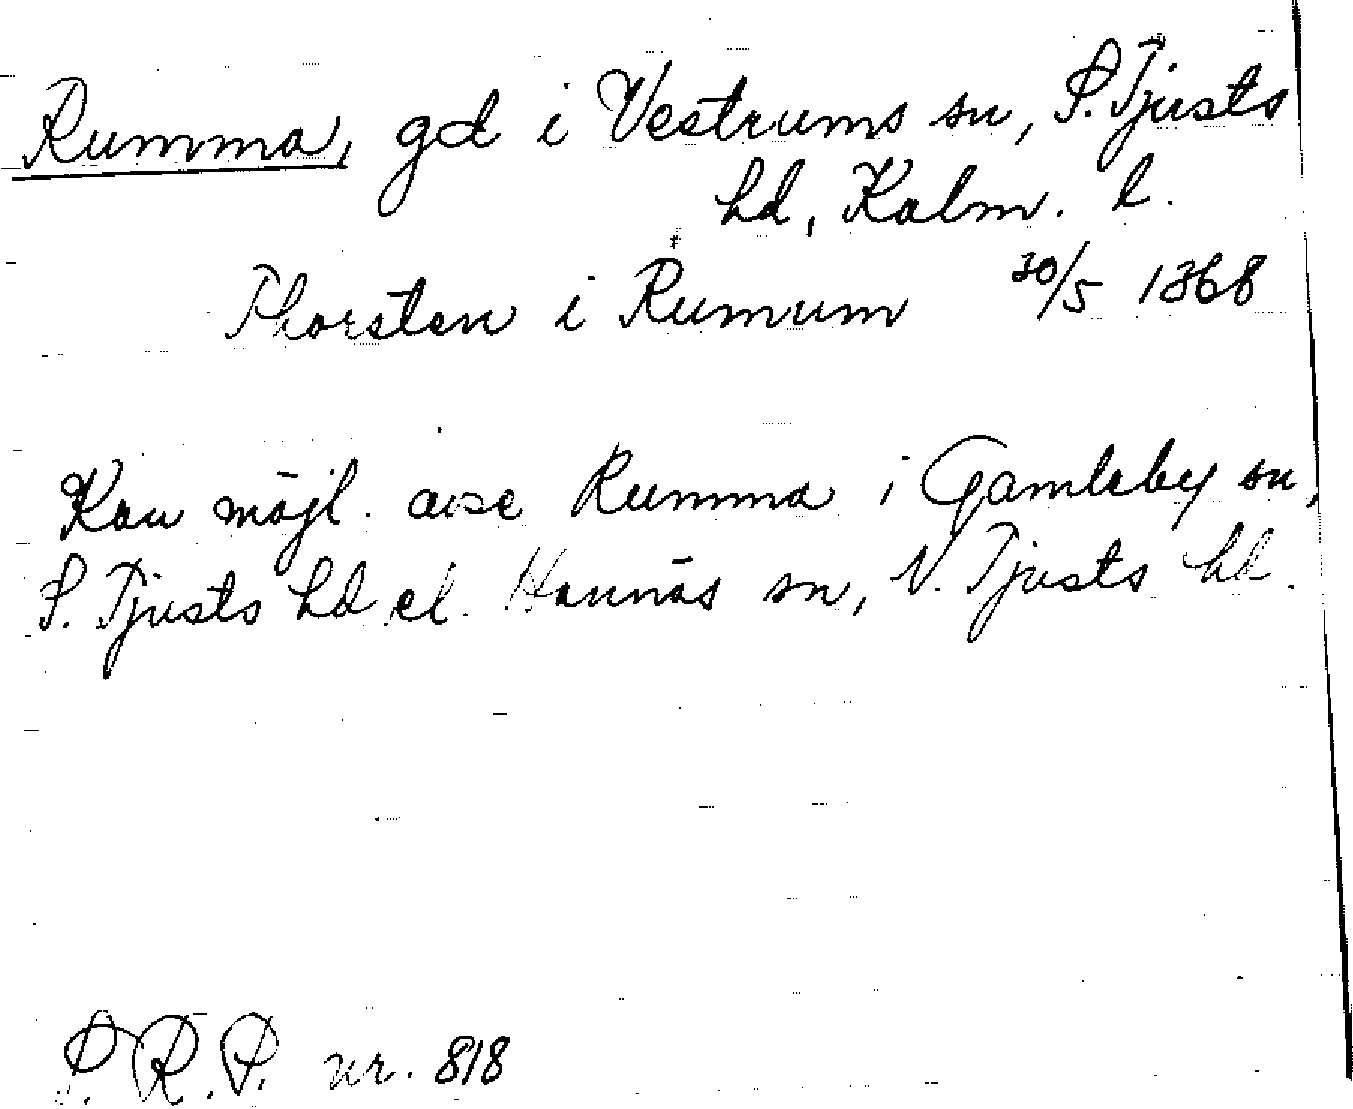 Rumma, gd i Vestrums sn, S. Tjusts
hd, Kalm. l.
Thorsten i Rumum 30/5 1368
Kan möjl. avse Rumma i Gamleby sn,
S. Tjusts hd el. Hannäs sn, N. Tjusts hd.
S.R.P. nr. 818